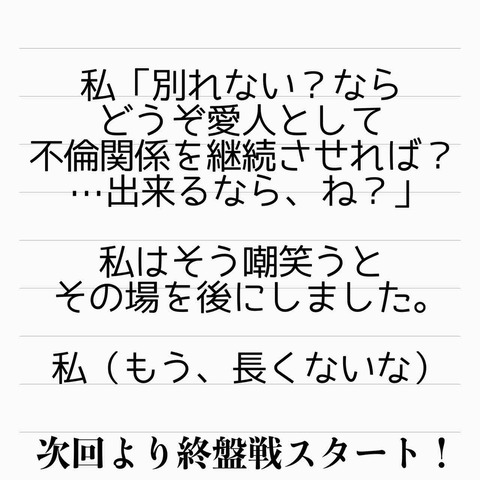 私「別れない？なら
どうぞ愛人として
不倫関係を継続させれば？
…出来るなら、ね？」
私はそう嘲笑うと
その場を後にしました。
私（もう、長くないな）
次回より終盤戦スタート！